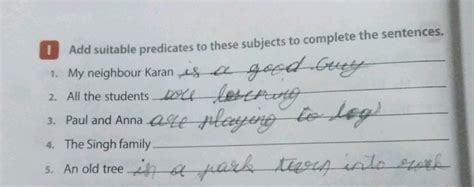 I Add suitable predicates to these subjects to complete the sentences.
1. My neighbour Karan is a good Guy
2. All the students
3. Paul and Anna are playing to
4. The Singh family
5. An old tree in a park turn into